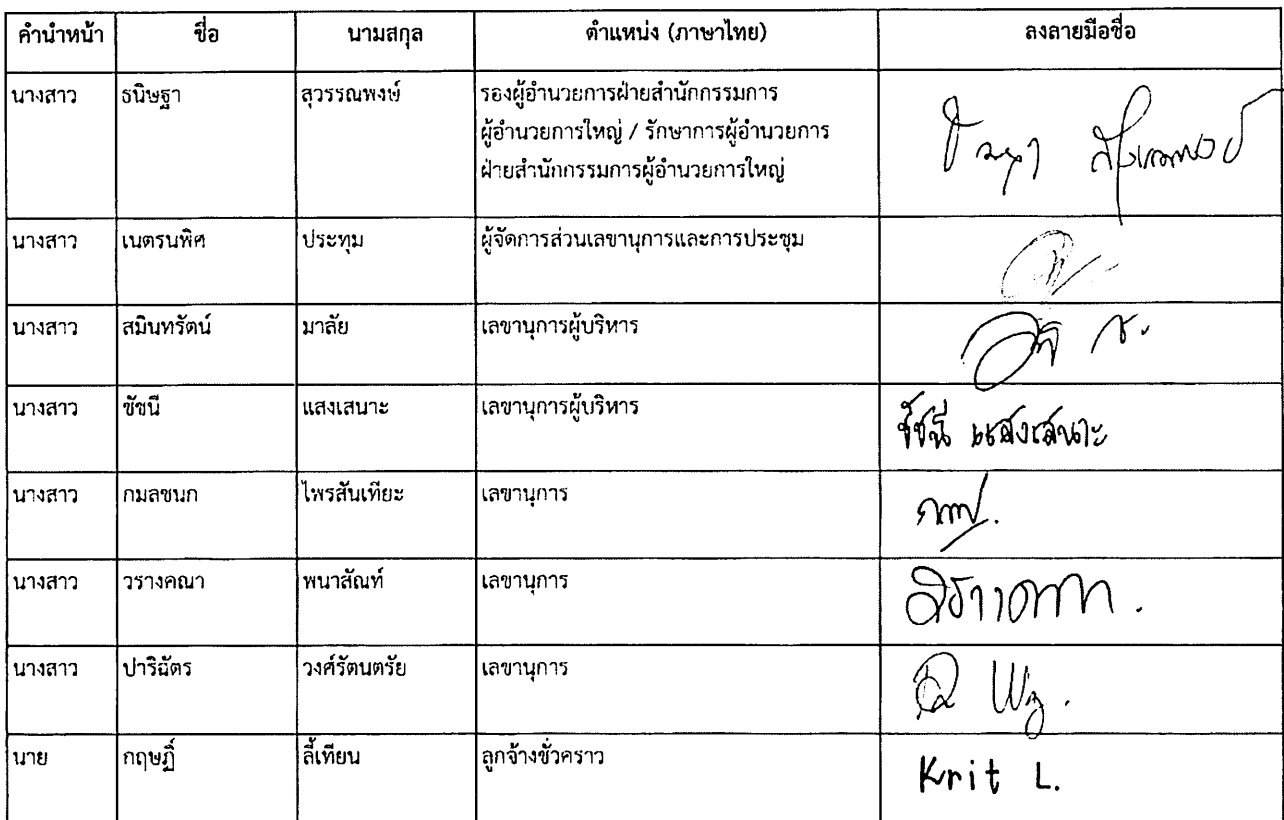 คำนำหน้า ชื่อ นามสกุล ตำแหน่ง (ภาษาไทย) ลงลายมือชื่อ
นางสาว ธนิษฐา สุวรรณพงษ์ รองผู้อำนวยการฝ่ายสำนักกรรมการ
ผู้อำนวยการใหญ่ / รักษาการผู้อำนวยการ
ฝ่ายสำนักกรรมการผู้อำนวยการใหญ่
นางสาว เนตรนพิศ ประทุม ผู้จัดการส่วนเลขานุการและการประชุม
นางสาว สมินทรัตน์ มาลัย เลขานุการผู้บริหาร
นางสาว ชัชนี แสงเสนาะ เลขานุการผู้บริหาร ชัชนี แสงเสนาะ
นางสาว กมลชนก ไพรสันเทียะ เลขานุการ
นางสาว วรางคณา พนาสัณท์ เลขานุการ
นางสาว ปาริฉัตร วงศ์รัตนตรัย เลขานุการ
นาย กฤษฎิ์ ลี้เทียน ลูกจ้างชั่วคราว Krit L.